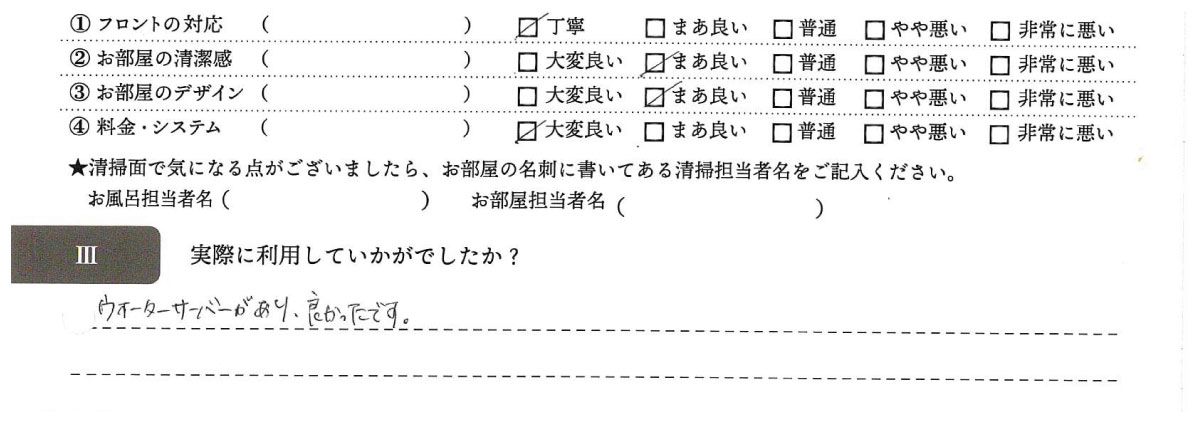 ① フロントの対応 ( ) ☑ 丁寧 □ まあ良い □ 普通 □ やや悪い □ 非常に悪い
② お部屋の清潔感 ( ) □ 大変良い ☑ まあ良い □ 普通 □ やや悪い □ 非常に悪い
③ お部屋のデザイン ( ) □ 大変良い ☑ まあ良い □ 普通 □ やや悪い □ 非常に悪い
④ 料金・システム ( ) ☑ 大変良い □ まあ良い □ 普通 □ やや悪い □ 非常に悪い
★清掃面で気になる点がございましたら、お部屋の名刺に書いてある清掃担当者名をご記入ください。
お風呂担当者名 ( ) お部屋担当者名 ( )
Ⅲ 実際に利用していかがでしたか？
ウォーターサーバーがあり、良かったです。